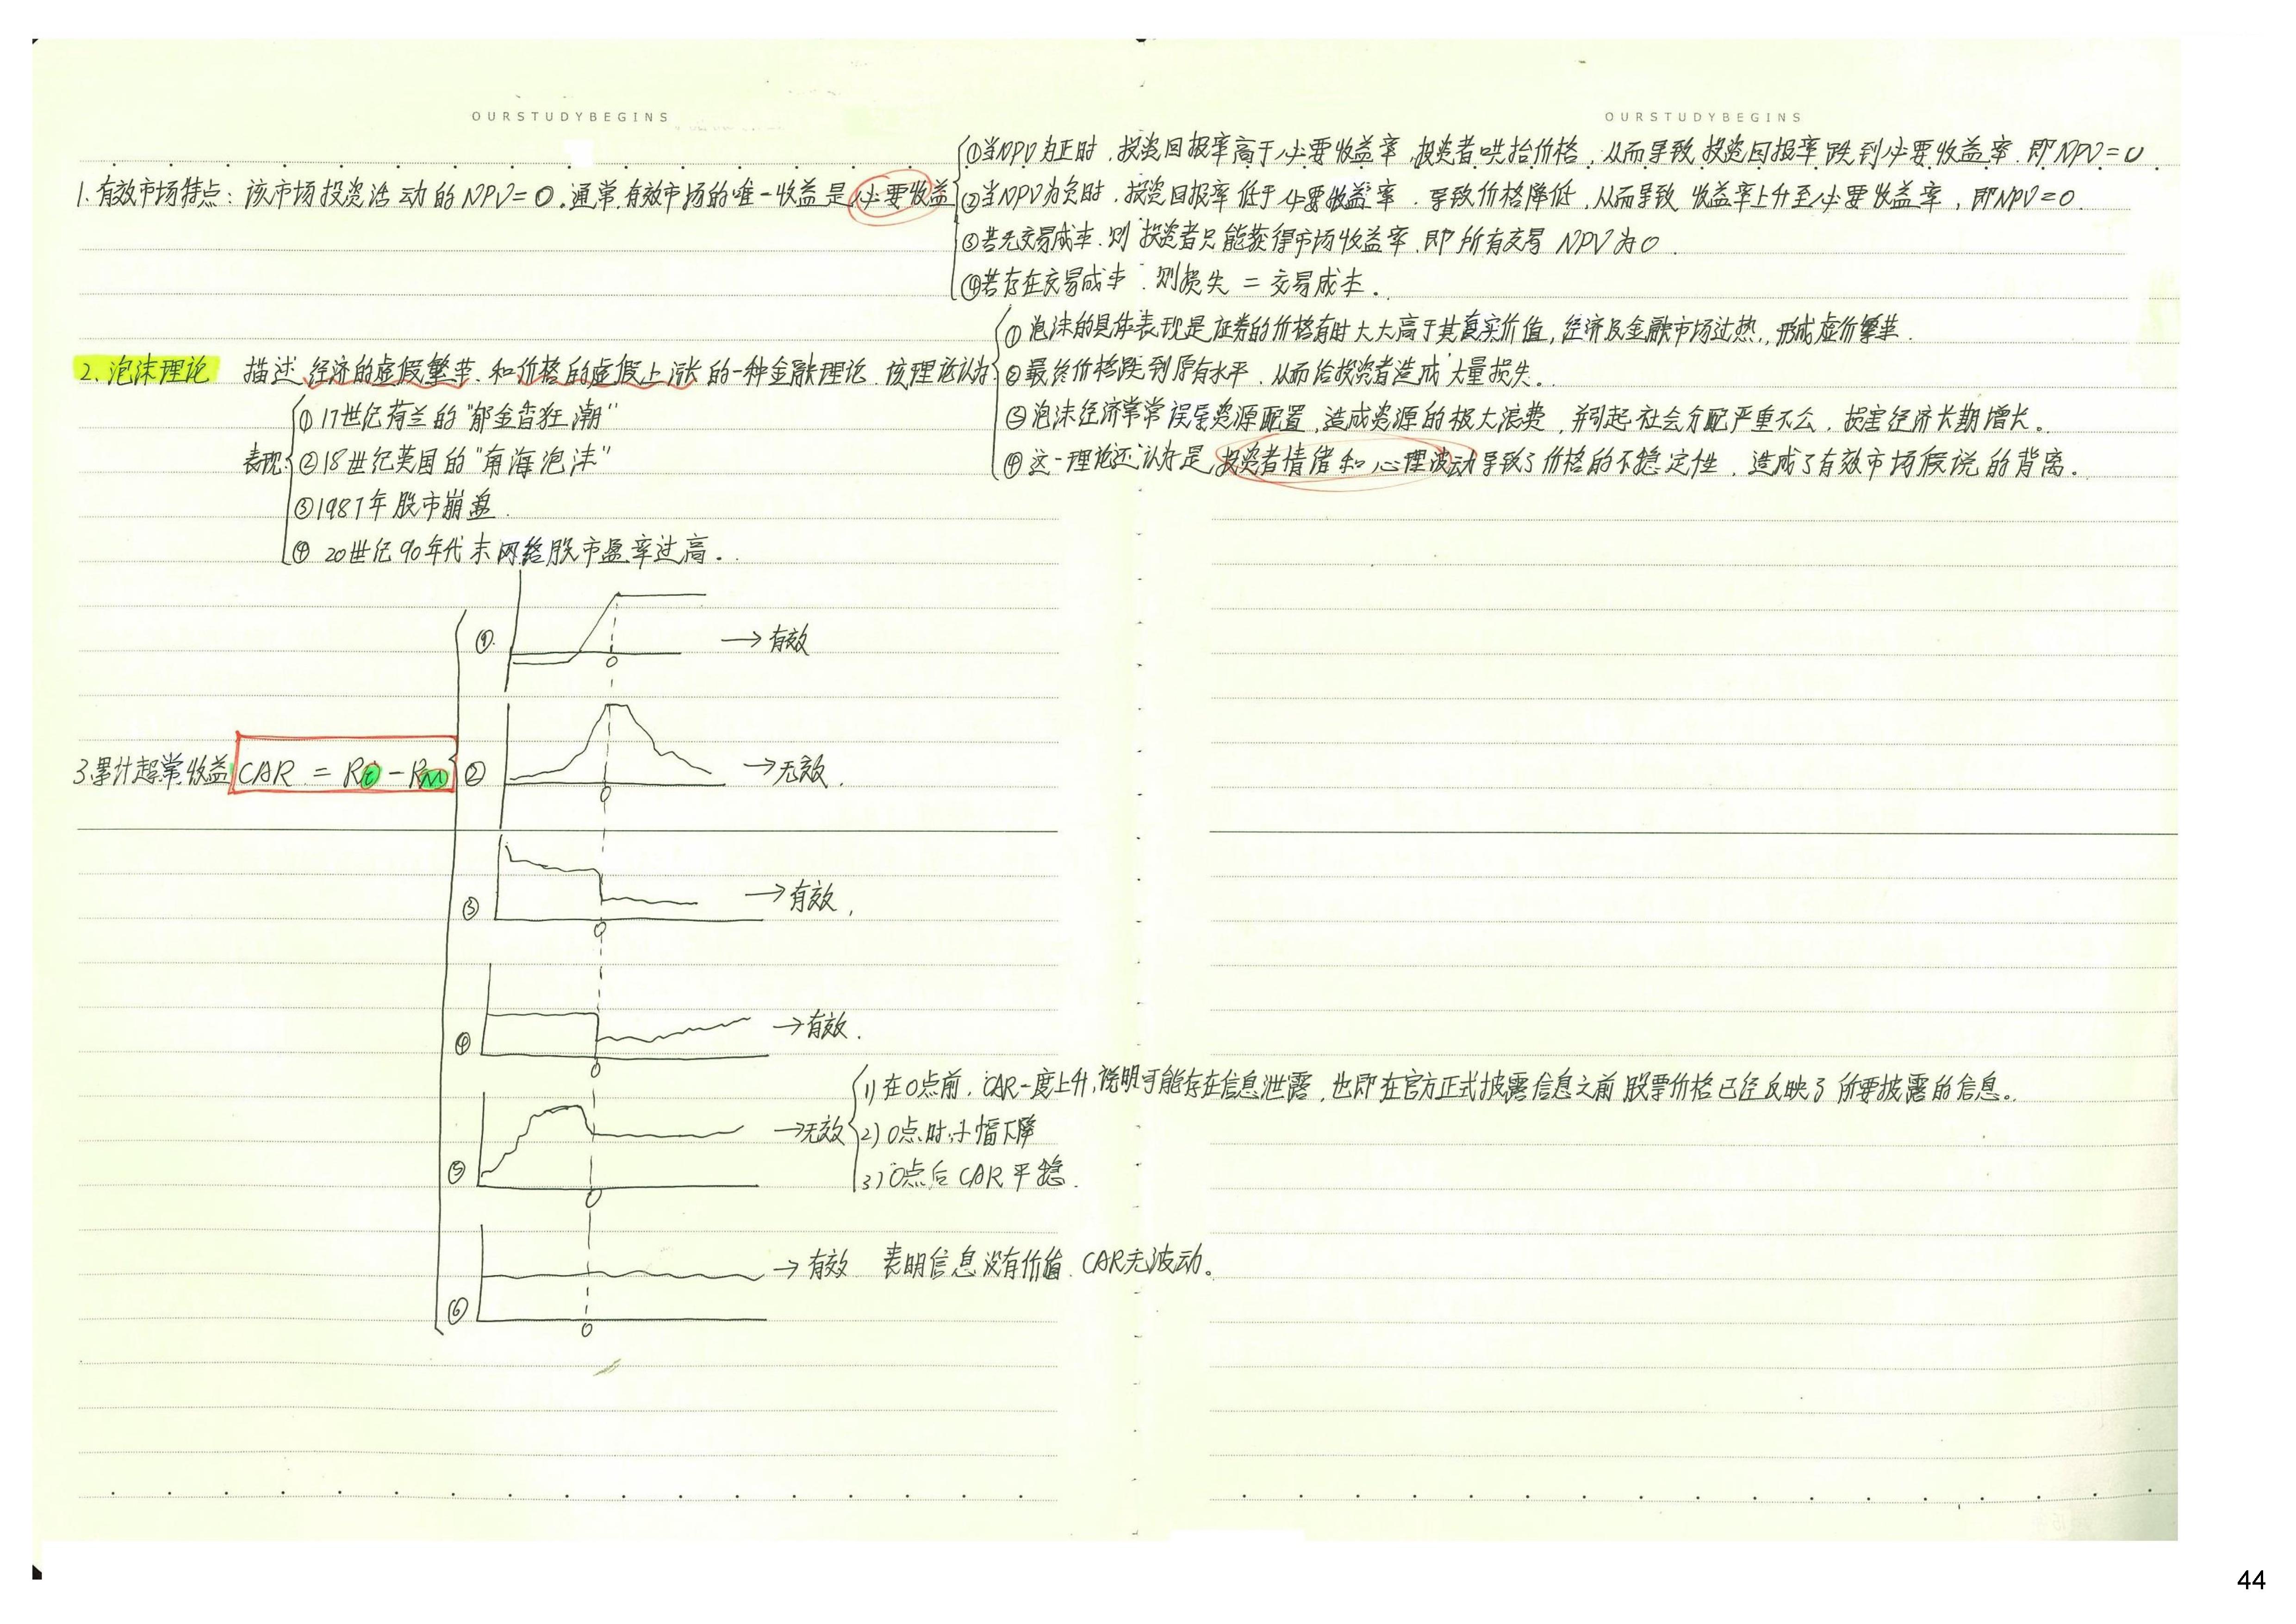 OURSTUDYBEGINS
OURSTUDYBEGINS
1.有效市场特点：该市场投资活动的NPV=0.通常.有效市场的唯一收益是必要收益
①当NPV为正时，投资回报率高于必要收益率.投资者哄抬价格，从而导致投资回报率跌到必要收益率.即NPV=0
②当NPV为负时，投资回报率低于必要收益率.导致价格降低，从而导致收益率上升至必要收益率，即NPV=0.
③若无交易成本.则投资者只能获得市场收益率.即所有交易NPV为0.
④若存在交易成本.则损失=交易成本.
2.泡沫理论 描述经济的虚假繁荣.和价格的虚假上涨的一种金融理论.该理论认为
①泡沫的具体表现是证券的价格有时大大高于其真实价值，经济及金融市场过热，形成虚价繁华.
②最终价格跌到原有水平.从而给投资者造成大量损失.
③泡沫经济常常误导资源配置,造成资源的极大浪费,并引起社会分配严重不公.损害经济长期增长。
④这一理论还认为是,投资者情绪和心理波动导致了价格的不稳定性，造成了有效市场假说的背离。
表现:
①17世纪荷兰的"郁金香狂潮"
②18世纪英国的"南海泡沫"
③1987年股市崩盘.
④20世纪90年代末网络股市盈率过高.
3.累计超常收益 CAR = Ri - RM
① 0 →有效
② 0 →无效.
③ 0 →有效.
④ 0 →有效.
⑤ 0 →无效
1)在0点前，CAR一度上升,说明可能存在信息泄露,也即在官方正式披露信息之前股票价格已经反映了所要披露的信息。
2)0点时小幅下降
3)0点后CAR平稳.
⑥ 0 →有效 表明信息没有价值.CAR无波动。
44